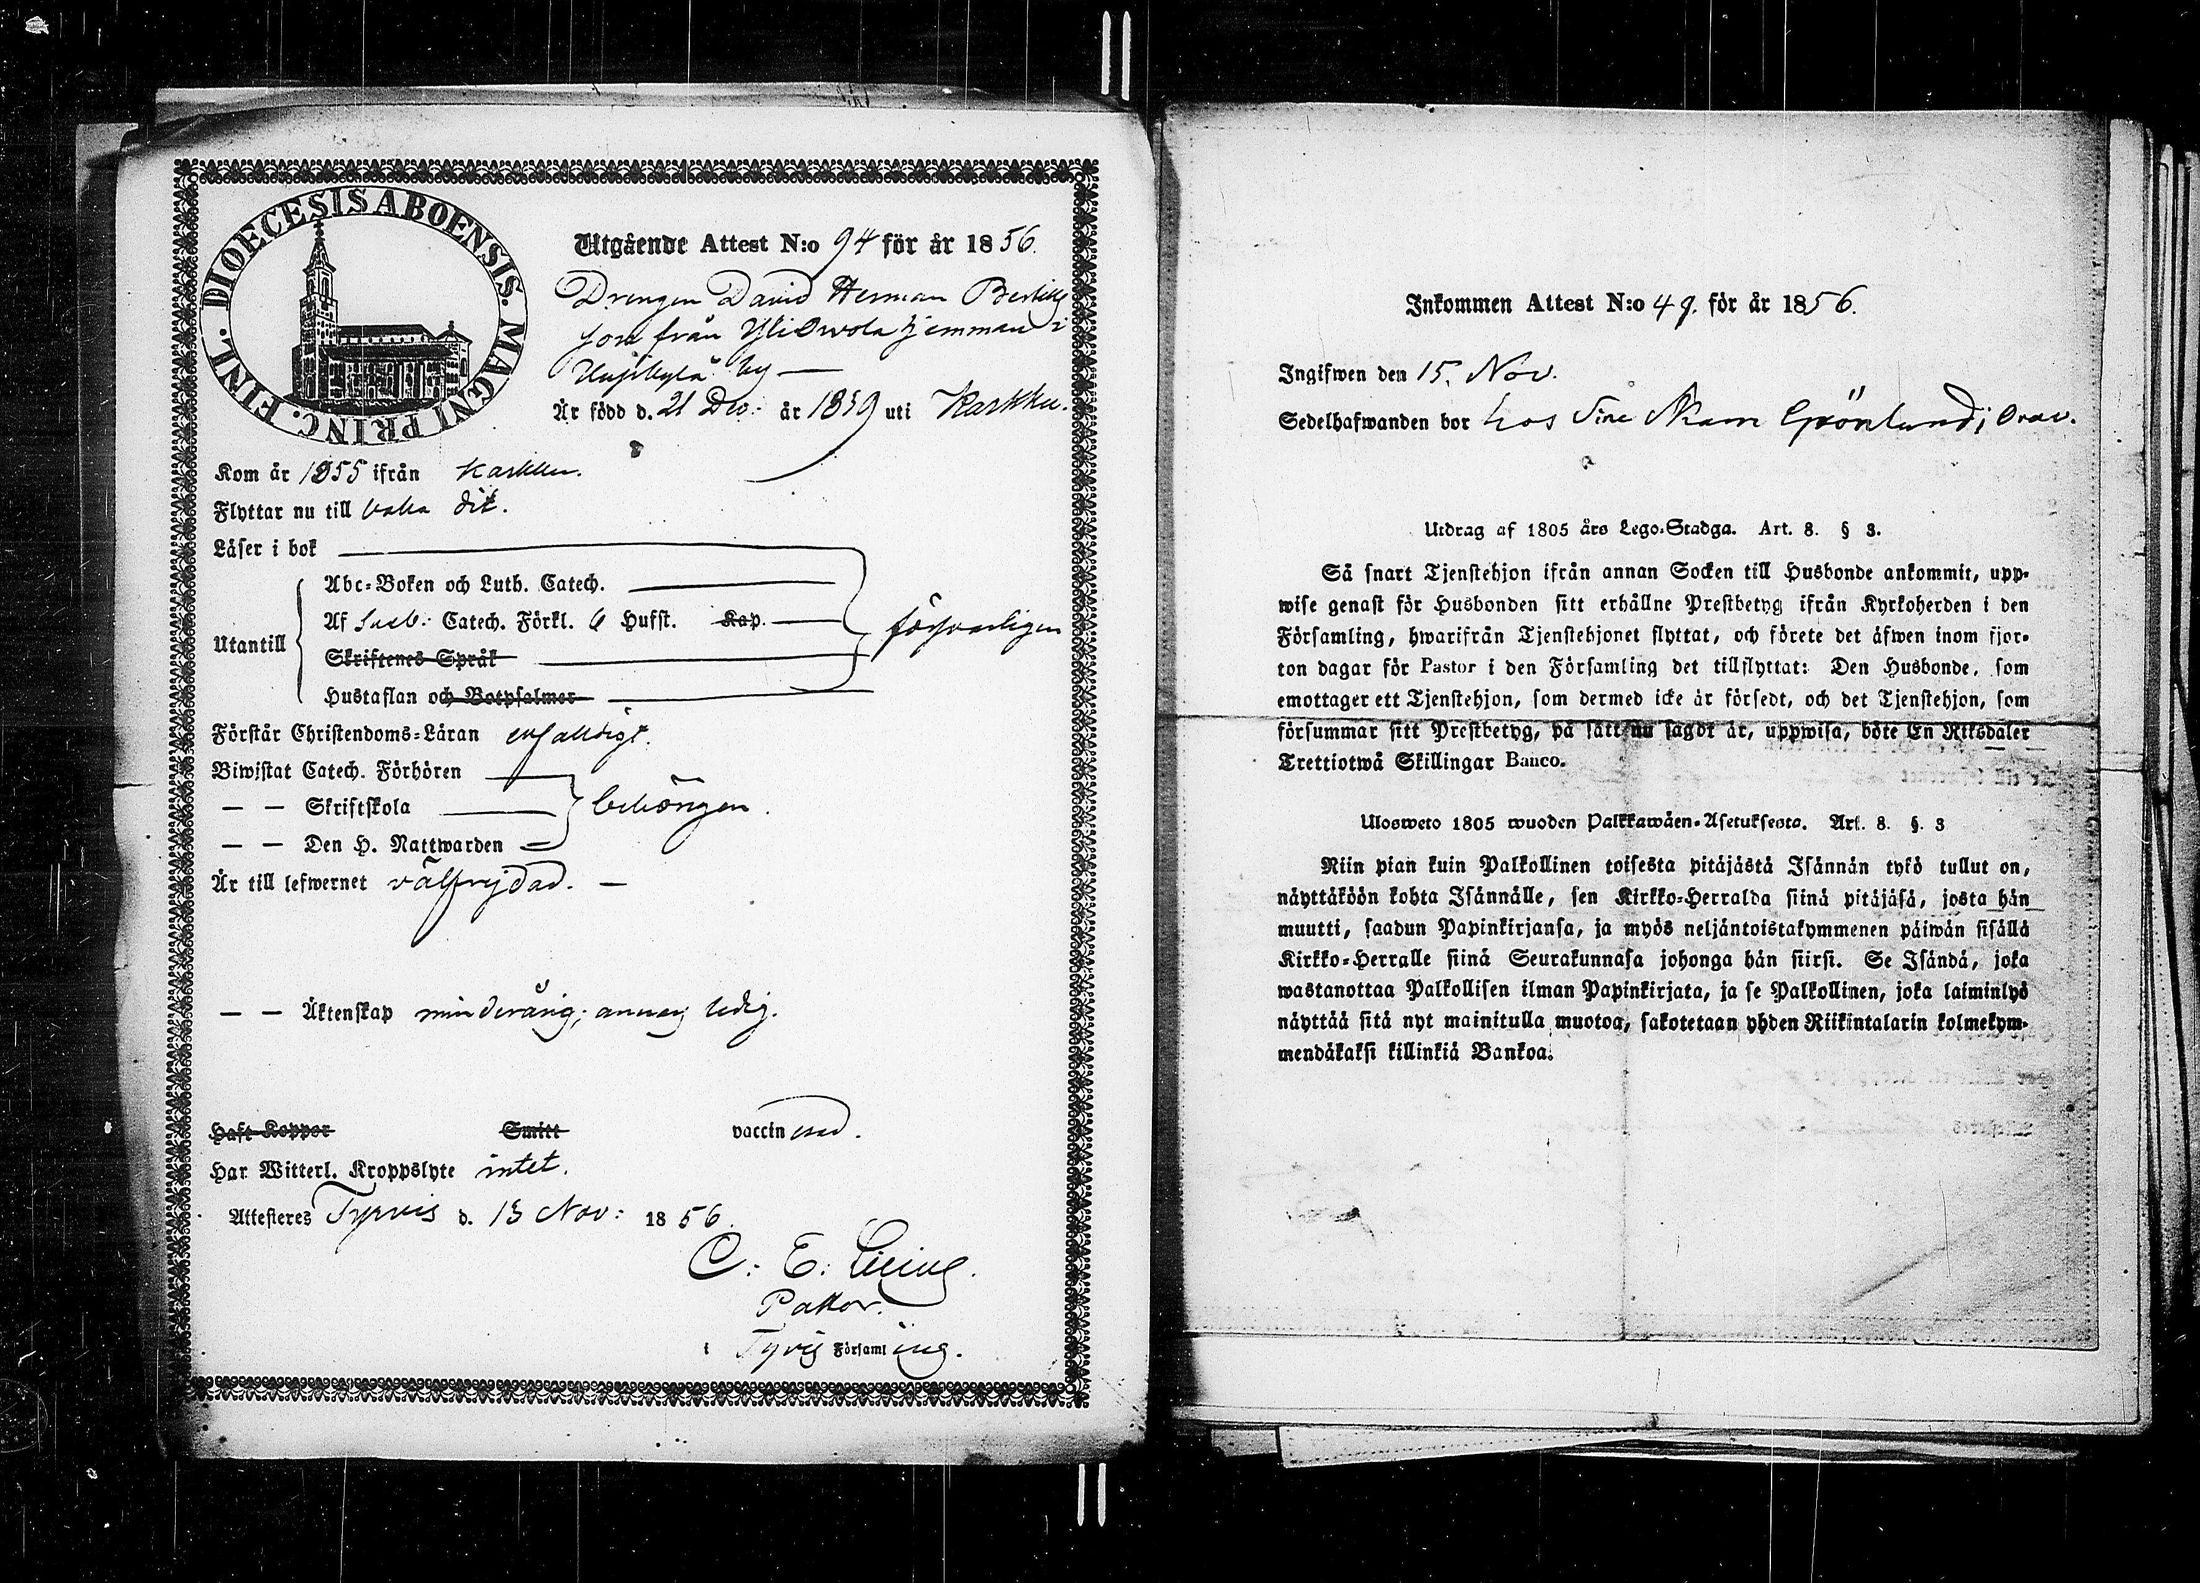 DIOECESIS ABOENSIS. MAGNI PRINC. FINL.
Utgående Attest N:o 94 för år 1856.
Drengen David Herman Bertils
son från Yli hemman i
by
Är född d. 21 Dec: år 1839 uti Karkku.
Kom år 1855 ifrån Karkku.
Flyttar nu till baka dit.
Läser i bok
Abc-Boken och Luth. Catech.
Utantill
Af Catech. Förkl. 6 Hufst. Kap.
försvarligen
Skriftenes Språk
Hustaflan och Botpsalmer
Förstår Christendoms-Läran enfaldigt.
Biwistat Catech. Förhören
— — Skriftskola
behörigen.
— — Den H. Nattwarden
Är till lefwernet välfrejdad. —
— — Äktenskap minderårig; annars ledig.
Haft Koppor Smitt vaccinerad.
Har Witterl. Kroppslyte intet.
Attesteres Tyrvis d. 13 Nov: 1856.
C: E:
Pastor.
i Tyrvis Församling.
Inkommen Attest N:o 49. för år 1856.
Ingifwen den 15. Nov.
Sedelhafwanden bor hos Grönlund i
Utdrag af 1805 års Lego-Stadga. Art. 8. § 3.
Så snart Tjenstehjon ifrån annan Socken till Husbonde ankommit, upp-
wise genast för Husbonden sitt erhållne Prestbetyg ifrån Kyrkoherden i den
Församling, hwarifrån Tjenstehjonet flyttat, och förete det äfwen inom fjor-
ton dagar för Pastor i den Församling det tillflyttat: Den Husbonde, som
emottager ett Tjenstehjon, som dermed icke är försedt, och det Tjenstehjon, som
försummar sitt Prestbetyg, på sätt nu sagdt är, uppwisa, böte En Riksdaler
Trettiotwå Skillingar Banco.
Ulosweto 1805 wuoden Palkkawäen-Asetuksesta. Art. 8. §. 3
Niin pian kuin Palkollinen toisesta pitäjästä Isännän tykö tullut on,
näyttäköön kohta Isännälle, sen Kirkko-Herralda siinä pitäjäsä, josta hän
muutti, saadun Papinkirjansa, ja myös neljäntoistakymmenen päiwän sisällä
Kirkko-Herralle siinä Seurakunnasa johonga hän siirsi. Se Isändä, joka
wastanottaa Palkollisen ilman Papinkirjata, ja se Palkollinen, joka laiminlyö
näyttää sitä nyt mainitulla muotoa, sakotetaan yhden Riikintalarin kolmekym-
mendäkaksi killinkiä Bankoa.